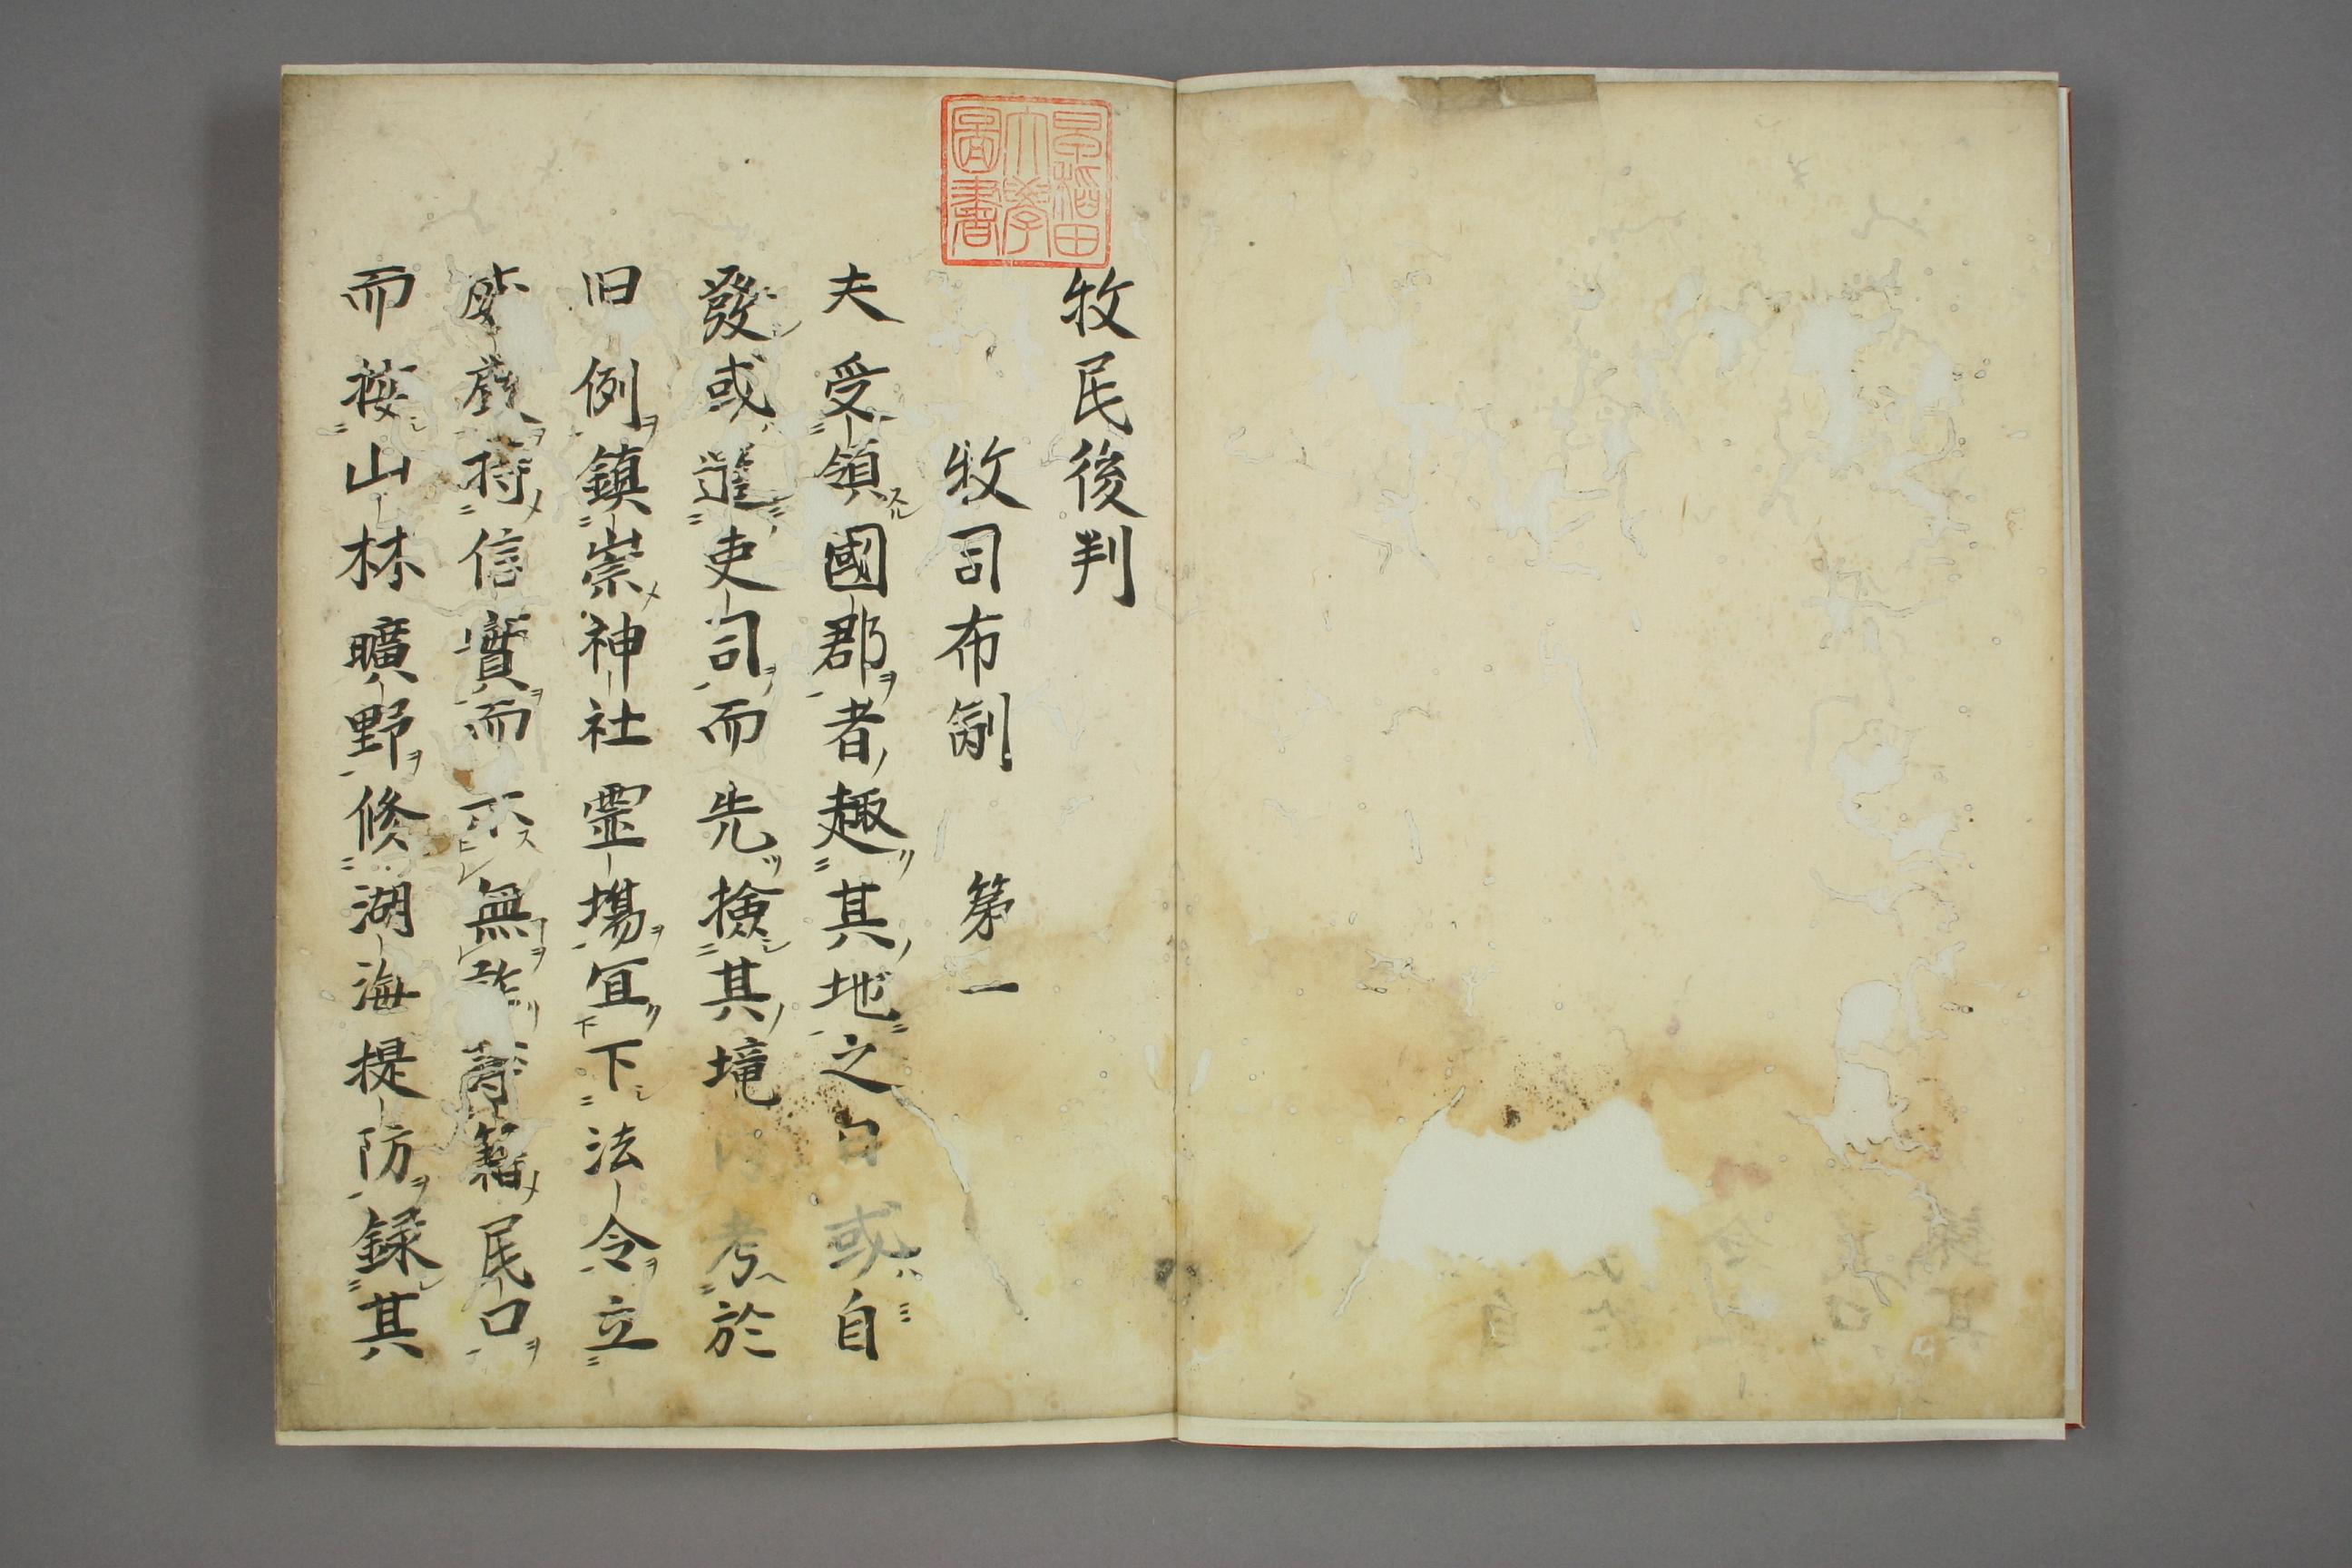 早稲田
大學
圖書
牧民後判
牧司布劄 第一
夫受領國郡者趣其地之日或自
發或遣吏司而先撿其境 考於
旧例鎮崇神社霊塲宜下法令立
嚴 信實而不無 籍民口
而按山林曠野修湖海提防録其